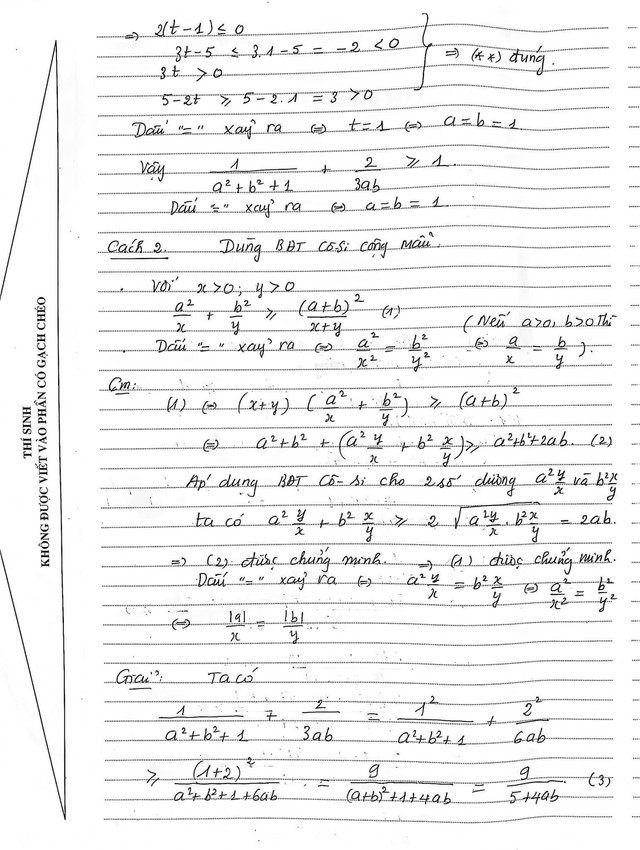 THÍ SINH
KHÔNG ĐƯỢC VIẾT VÀO PHẦN CÓ GẠCH CHÉO
⇒ 2(t-1) ≤ 0
3t-5 ≤ 3.1-5 = -2 < 0
3t > 0
5-2t ≥ 5-2.1 = 3 > 0
⇒ (**) đúng.
Dấu "=" xảy ra ⇔ t=1 ⇔ a=b=1.
Vậy 1/(a²+b²+1) + 2/(3ab) ≥ 1.
Dấu "=" xảy ra ⇔ a=b=1.
Cách 2. Dùng BĐT Cô-Si cộng mẫu.
. Với x>0; y>0
a²/x + b²/y ≥ (a+b)²/(x+y) (1)
. Dấu "=" xảy ra ⇔ a²/x² = b²/y² (Nếu a>0, b>0 thì ⇔ a/x = b/y).
Cm:
(1) ⇔ (x+y) (a²/x + b²/y) ≥ (a+b)²
⇔ a²+b² + (a² y/x + b² x/y) ≥ a²+b²+2ab. (2)
Áp dụng BĐT Cô-Si cho 2 số dương a²y/x và b²x/y
ta có a² y/x + b² x/y ≥ 2 √(a²y/x . b²x/y) = 2ab.
⇒ (2) được chứng minh. ⇒ (1) được chứng minh.
Dấu "=" xảy ra ⇔ a² y/x = b² x/y ⇔ a²/x² = b²/y²
⇔ |a|/x = |b|/y
Giải: Ta có
1/(a²+b²+1) + 2/(3ab) = 1²/(a²+b²+1) + 2²/(6ab)
≥ (1+2)²/(a²+b²+1+6ab) = 9/((a+b)²+1+4ab) = 9/(5+4ab) (3)